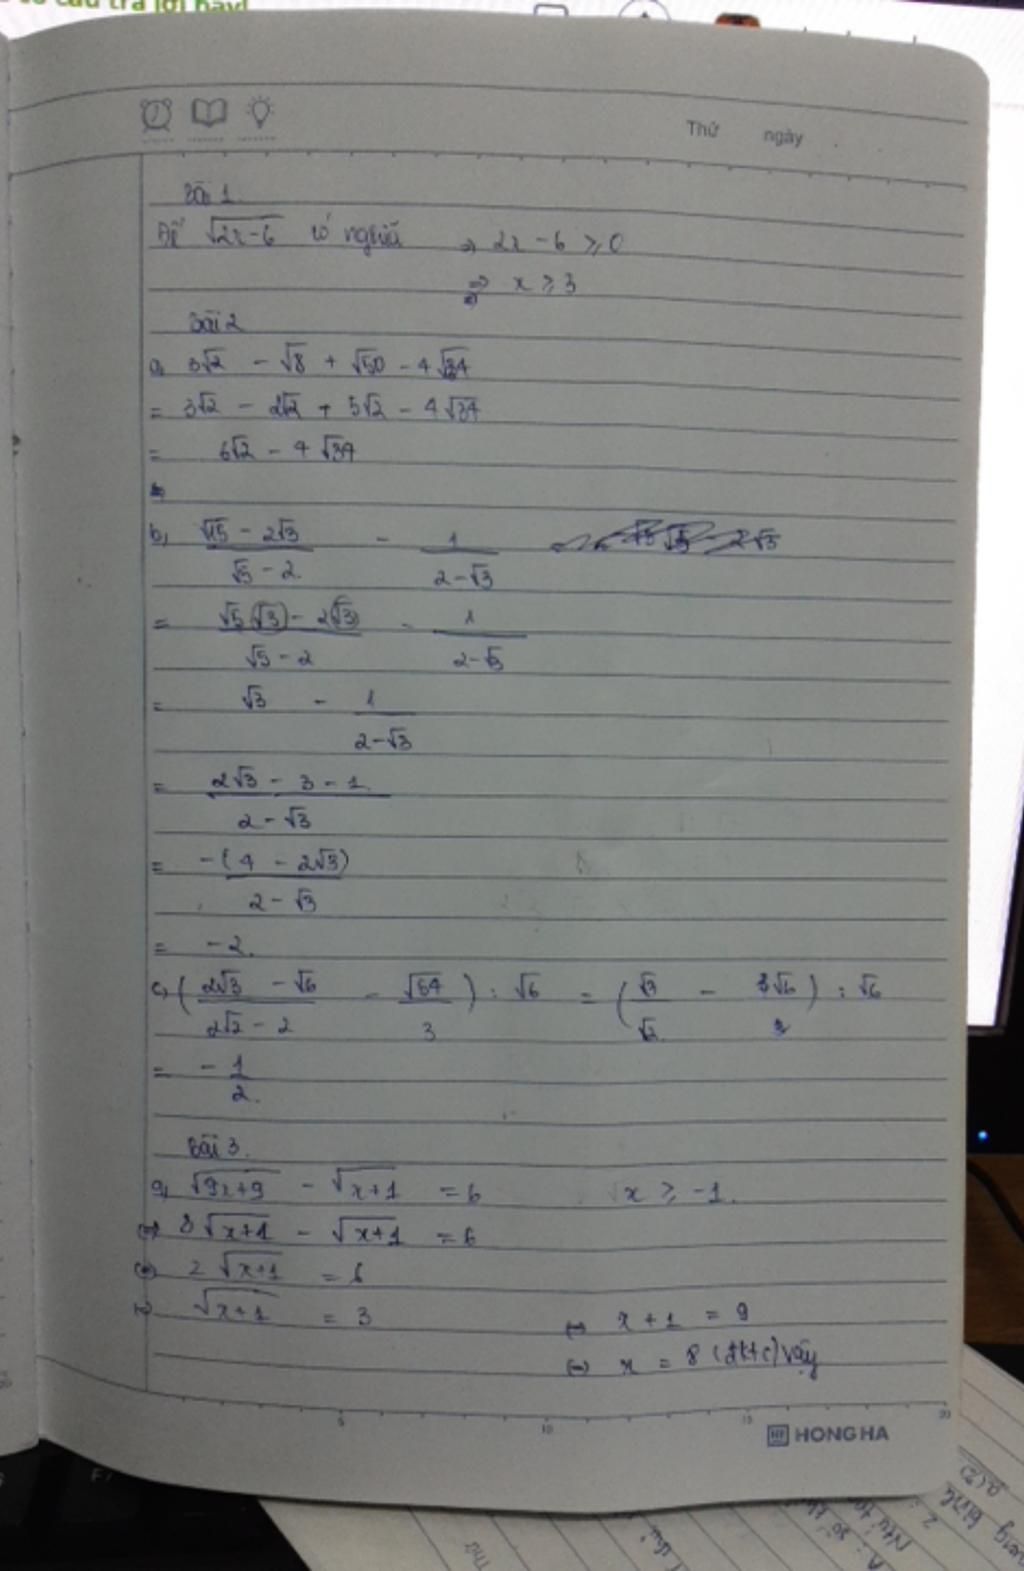 Thứ ngày
Bài 1.
Để √2x-6 có nghĩa => 2x - 6 ≥ 0
=> x ≥ 3
Bài 2
a, 3√2 - √8 + √50 - 4√34
= 3√2 - 2√2 + 5√2 - 4√34
= 6√2 - 4√34
b, (√15 - 2√3)/(√5 - 2) - 1/(2-√3)
= (√5(√3) - 2(√3))/(√5 - 2) - 1/(2-√3)
= √3 - 1/(2-√3)
= (2√3 - 3 - 1)/(2 - √3)
= -(4 - 2√3)/(2 - √3)
= -2.
c, ((2√3 - √6)/(2√2 - 2) - √54/3) : √6 = (√3/√2 - 3√6/3) : √6
= -1/2.
Bài 3.
a, √9x+9 - √x+1 = 6 x ≥ -1.
<=> 3√x+1 - √x+1 = 6
<=> 2√x+1 = 6
<=> √x+1 = 3 <=> x + 1 = 9
<=> x = 8 (đk t/c) vậy
5 10 15 20
HONG HA